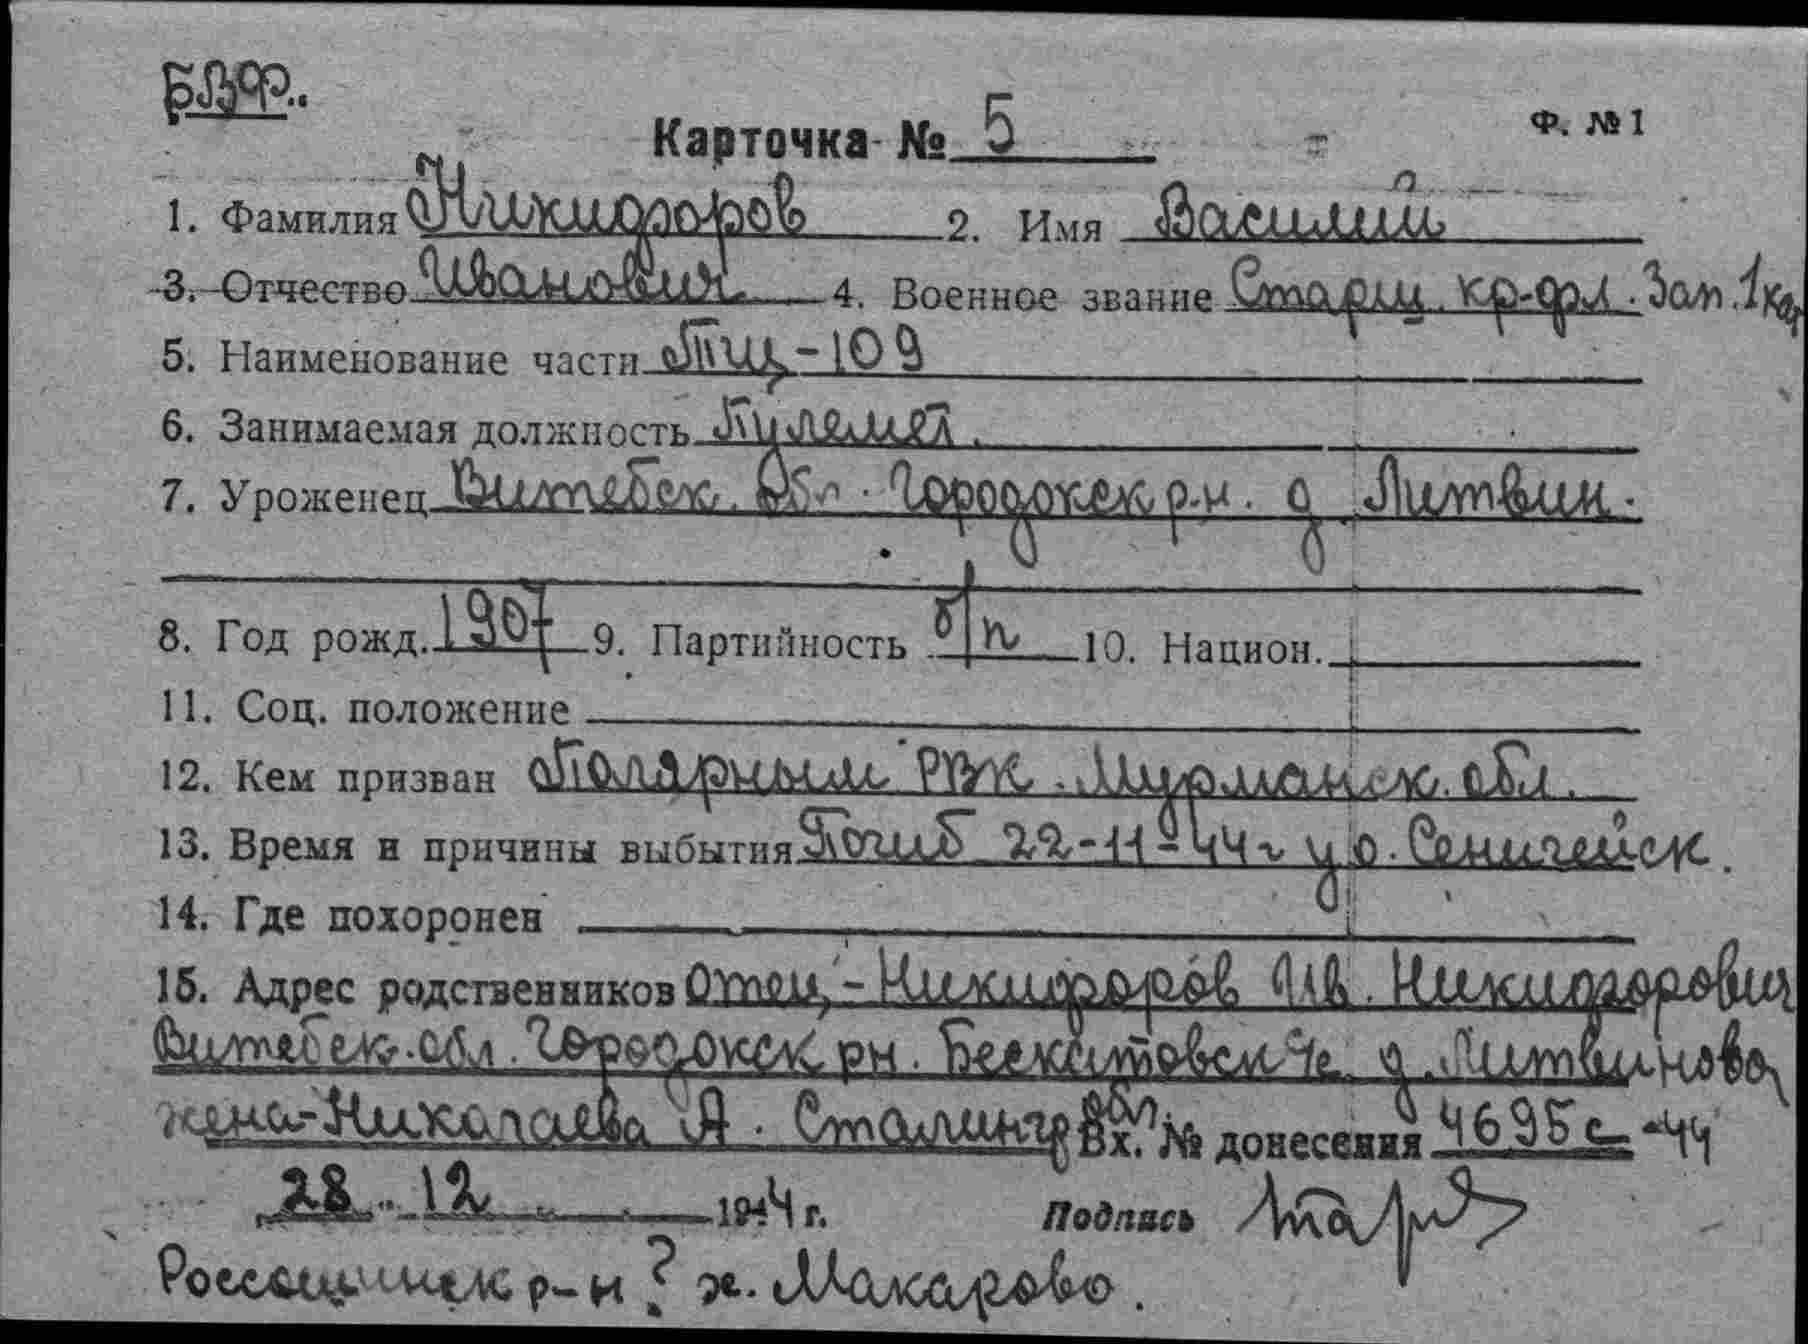 БВФ..
Карточка № 5
Ф. №1
1. Фамилия Никифоров 2. Имя Василий
3. Отчество Иванович 4. Военное звание Старш. кр-фл. Зап. 1 кат
5. Наименование части ТТЩ-109
6. Занимаемая должность Пулемет.
7. Уроженец Витебск. Обл. Городокск р-н. д. Литвин.
8. Год рожд. 1907 9. Партийность б/п 10. Национ.
11. Соц. положение
12. Кем призван Полярным РВК. Мурманск. обл.
13. Время и причины выбытия Погиб 22-11-44 г у о. Сенигейск.
14. Где похоронен
15. Адрес родственников Отец,-Никифоров Ив. Никифорович
Витебск. обл. Городокск рн. д. Литвинова
жена-Николаева А. Сталингр обл. Вх. № донесения 4695с-44
28.12 1944 г. Подпись
р-н? х. Макарово.